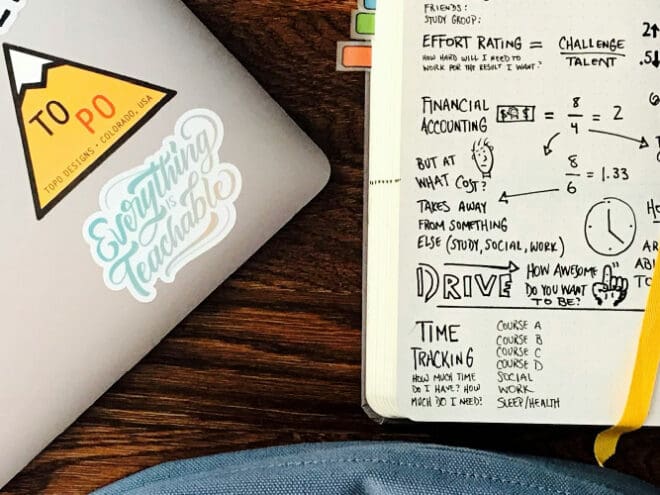 TO
PO
TOPO DESIGNS • COLORADO, USA
Everything
IS
Teachable
FRIENDS:
STUDY GROUP:
EFFORT RATING = CHALLENGE
TALENT
HOW HARD WILL I NEED TO
WORK FOR THE RESULT I WANT?
2
.5
FINANCIAL
ACCOUNTING
= 8/4 = 2
BUT AT
WHAT COST?
8/6 = 1.33
TAKES AWAY
FROM SOMETHING
ELSE (STUDY, SOCIAL, WORK)
DRIVE
HOW AWESOME
DO YOU WANT
TO BE?
TIME
TRACKING
HOW MUCH TIME
DO I HAVE? HOW
MUCH DO I NEED?
COURSE A
COURSE B
COURSE C
COURSE D
SOCIAL
WORK
SLEEP/HEALTH